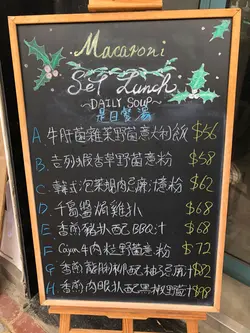 Macaroni
Set Lunch
~DAILY SOUP~
是日餐湯
A. 牛肝菌雜菜野菌意大利飯 $56
B. 吉列蝦香草野菌意粉 $58
C. 韓式泡菜 意粉 $62
D. 千島醬焗雞扒 $68
E. 香煎豬扒配BBQ汁 $68
F. Cajun牛肉粒野菌意粉 $72
G. 香煎 配柚子麻汁 $82
H. 香煎肉眼扒配黑椒野菌汁 $98